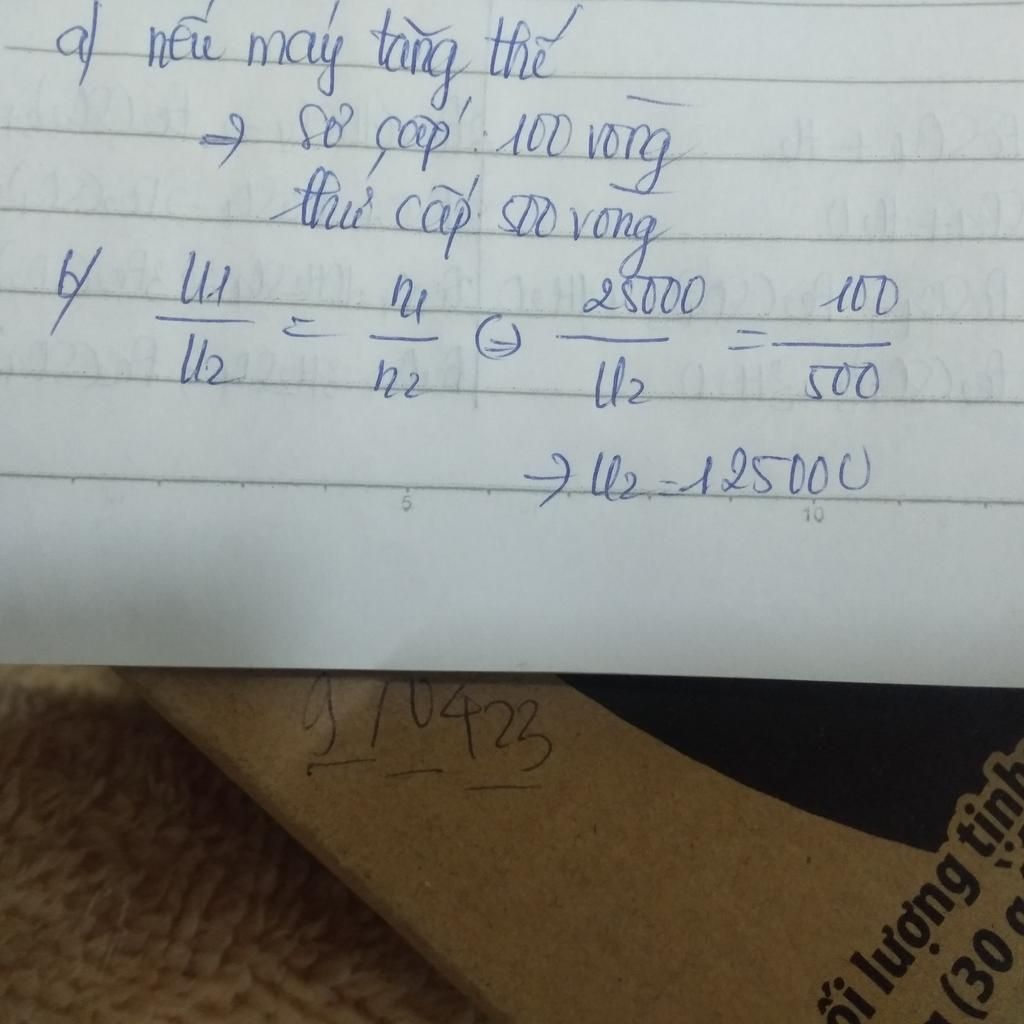 a) nếu máy tăng thế
=> sơ cấp: 100 vòng
thứ cấp: 500 vòng
b) U1/U2 = n1/n2 <=> 25000/U2 = 100/500
-> U2 = 125000
5 10
970423
ối lượng tịnh
(30 g